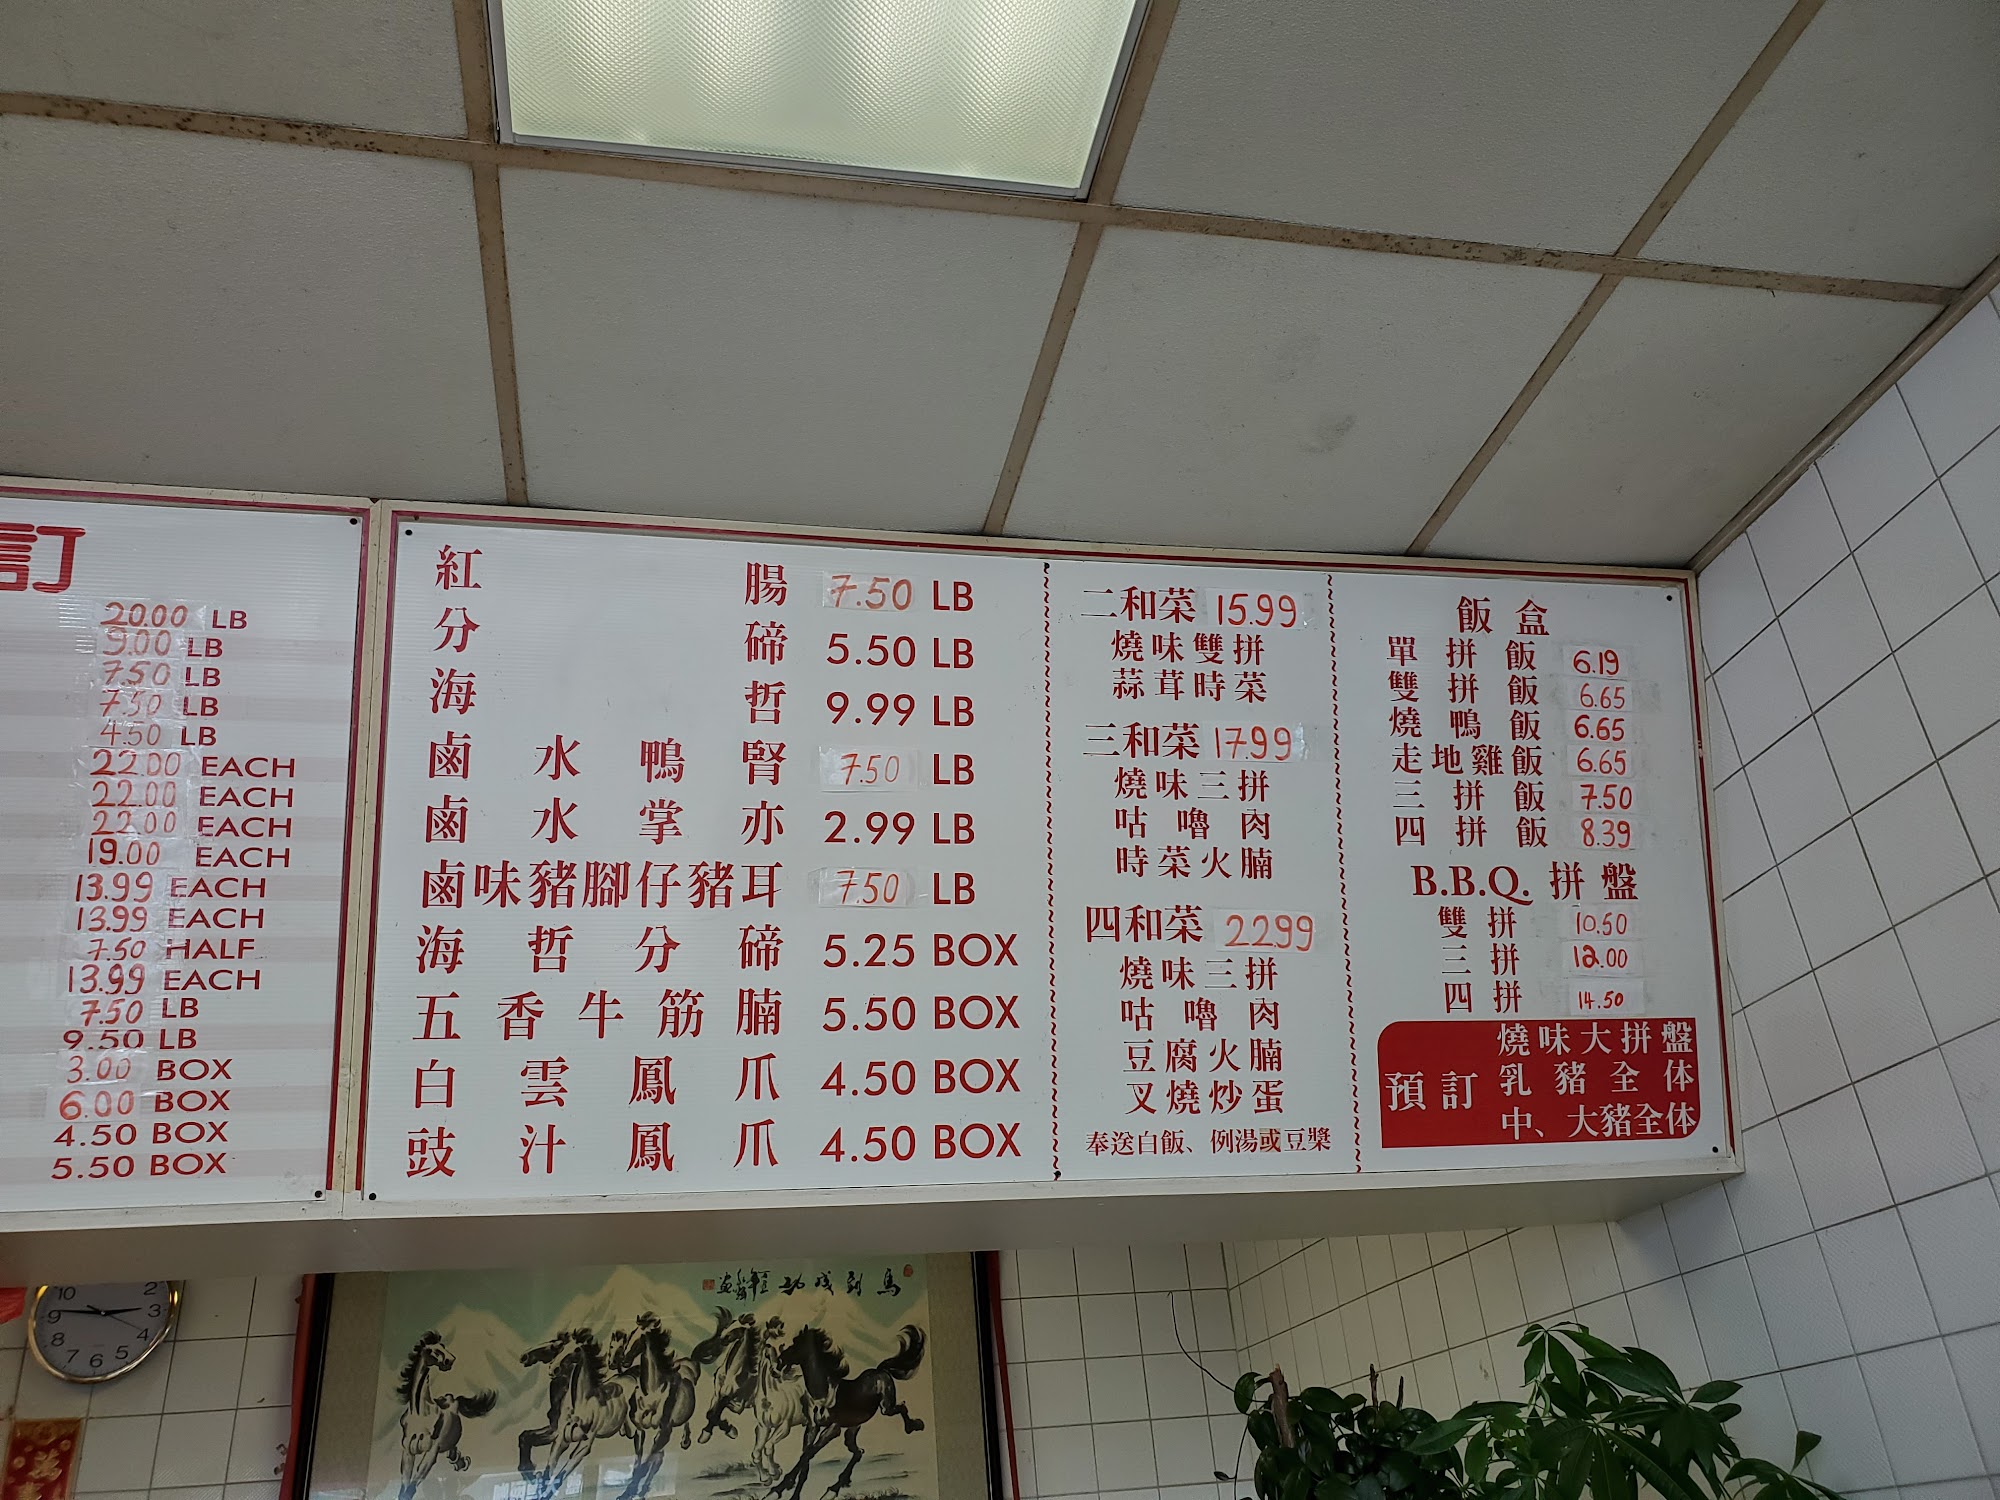 訂
20.00 LB
9.00 LB
7.50 LB
7.50 LB
4.50 LB
22.00 EACH
22.00 EACH
22.00 EACH
19.00 EACH
13.99 EACH
13.99 EACH
7.50 HALF
13.99 EACH
7.50 LB
9.50 LB
3.00 BOX
6.00 BOX
4.50 BOX
5.50 BOX
紅腸 7.50 LB
分碲 5.50 LB
海哲 9.99 LB
鹵水鴨腎 7.50 LB
鹵水掌亦 2.99 LB
鹵味豬腳仔豬耳 7.50 LB
海哲分碲 5.25 BOX
五香牛筋腩 5.50 BOX
白雲鳳爪 4.50 BOX
豉汁鳳爪 4.50 BOX
二和菜 15.99
燒味雙拼
蒜茸時菜
三和菜 17.99
燒味三拼
咕嚕肉
時菜火腩
四和菜 22.99
燒味三拼
咕嚕肉
豆腐火腩
叉燒炒蛋
奉送白飯、例湯或豆漿
飯盒
單拼飯 6.19
雙拼飯 6.65
燒鴨飯 6.65
走地雞飯 6.65
三拼飯 7.50
四拼飯 8.39
B.B.Q. 拼盤
雙拼 10.50
三拼 12.00
四拼 14.50
預訂
燒味大拼盤
乳豬全体
中、大豬全体
馬到成功
10 2
9 3
8 4
7 6 5